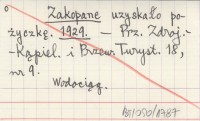 o Zakopane uzyskało po-
życzkę. 1929. — Prz. Zdroj.-
-Kąpiel. i Przew. Turyst. 18,
nr 9.
Wodociąg.